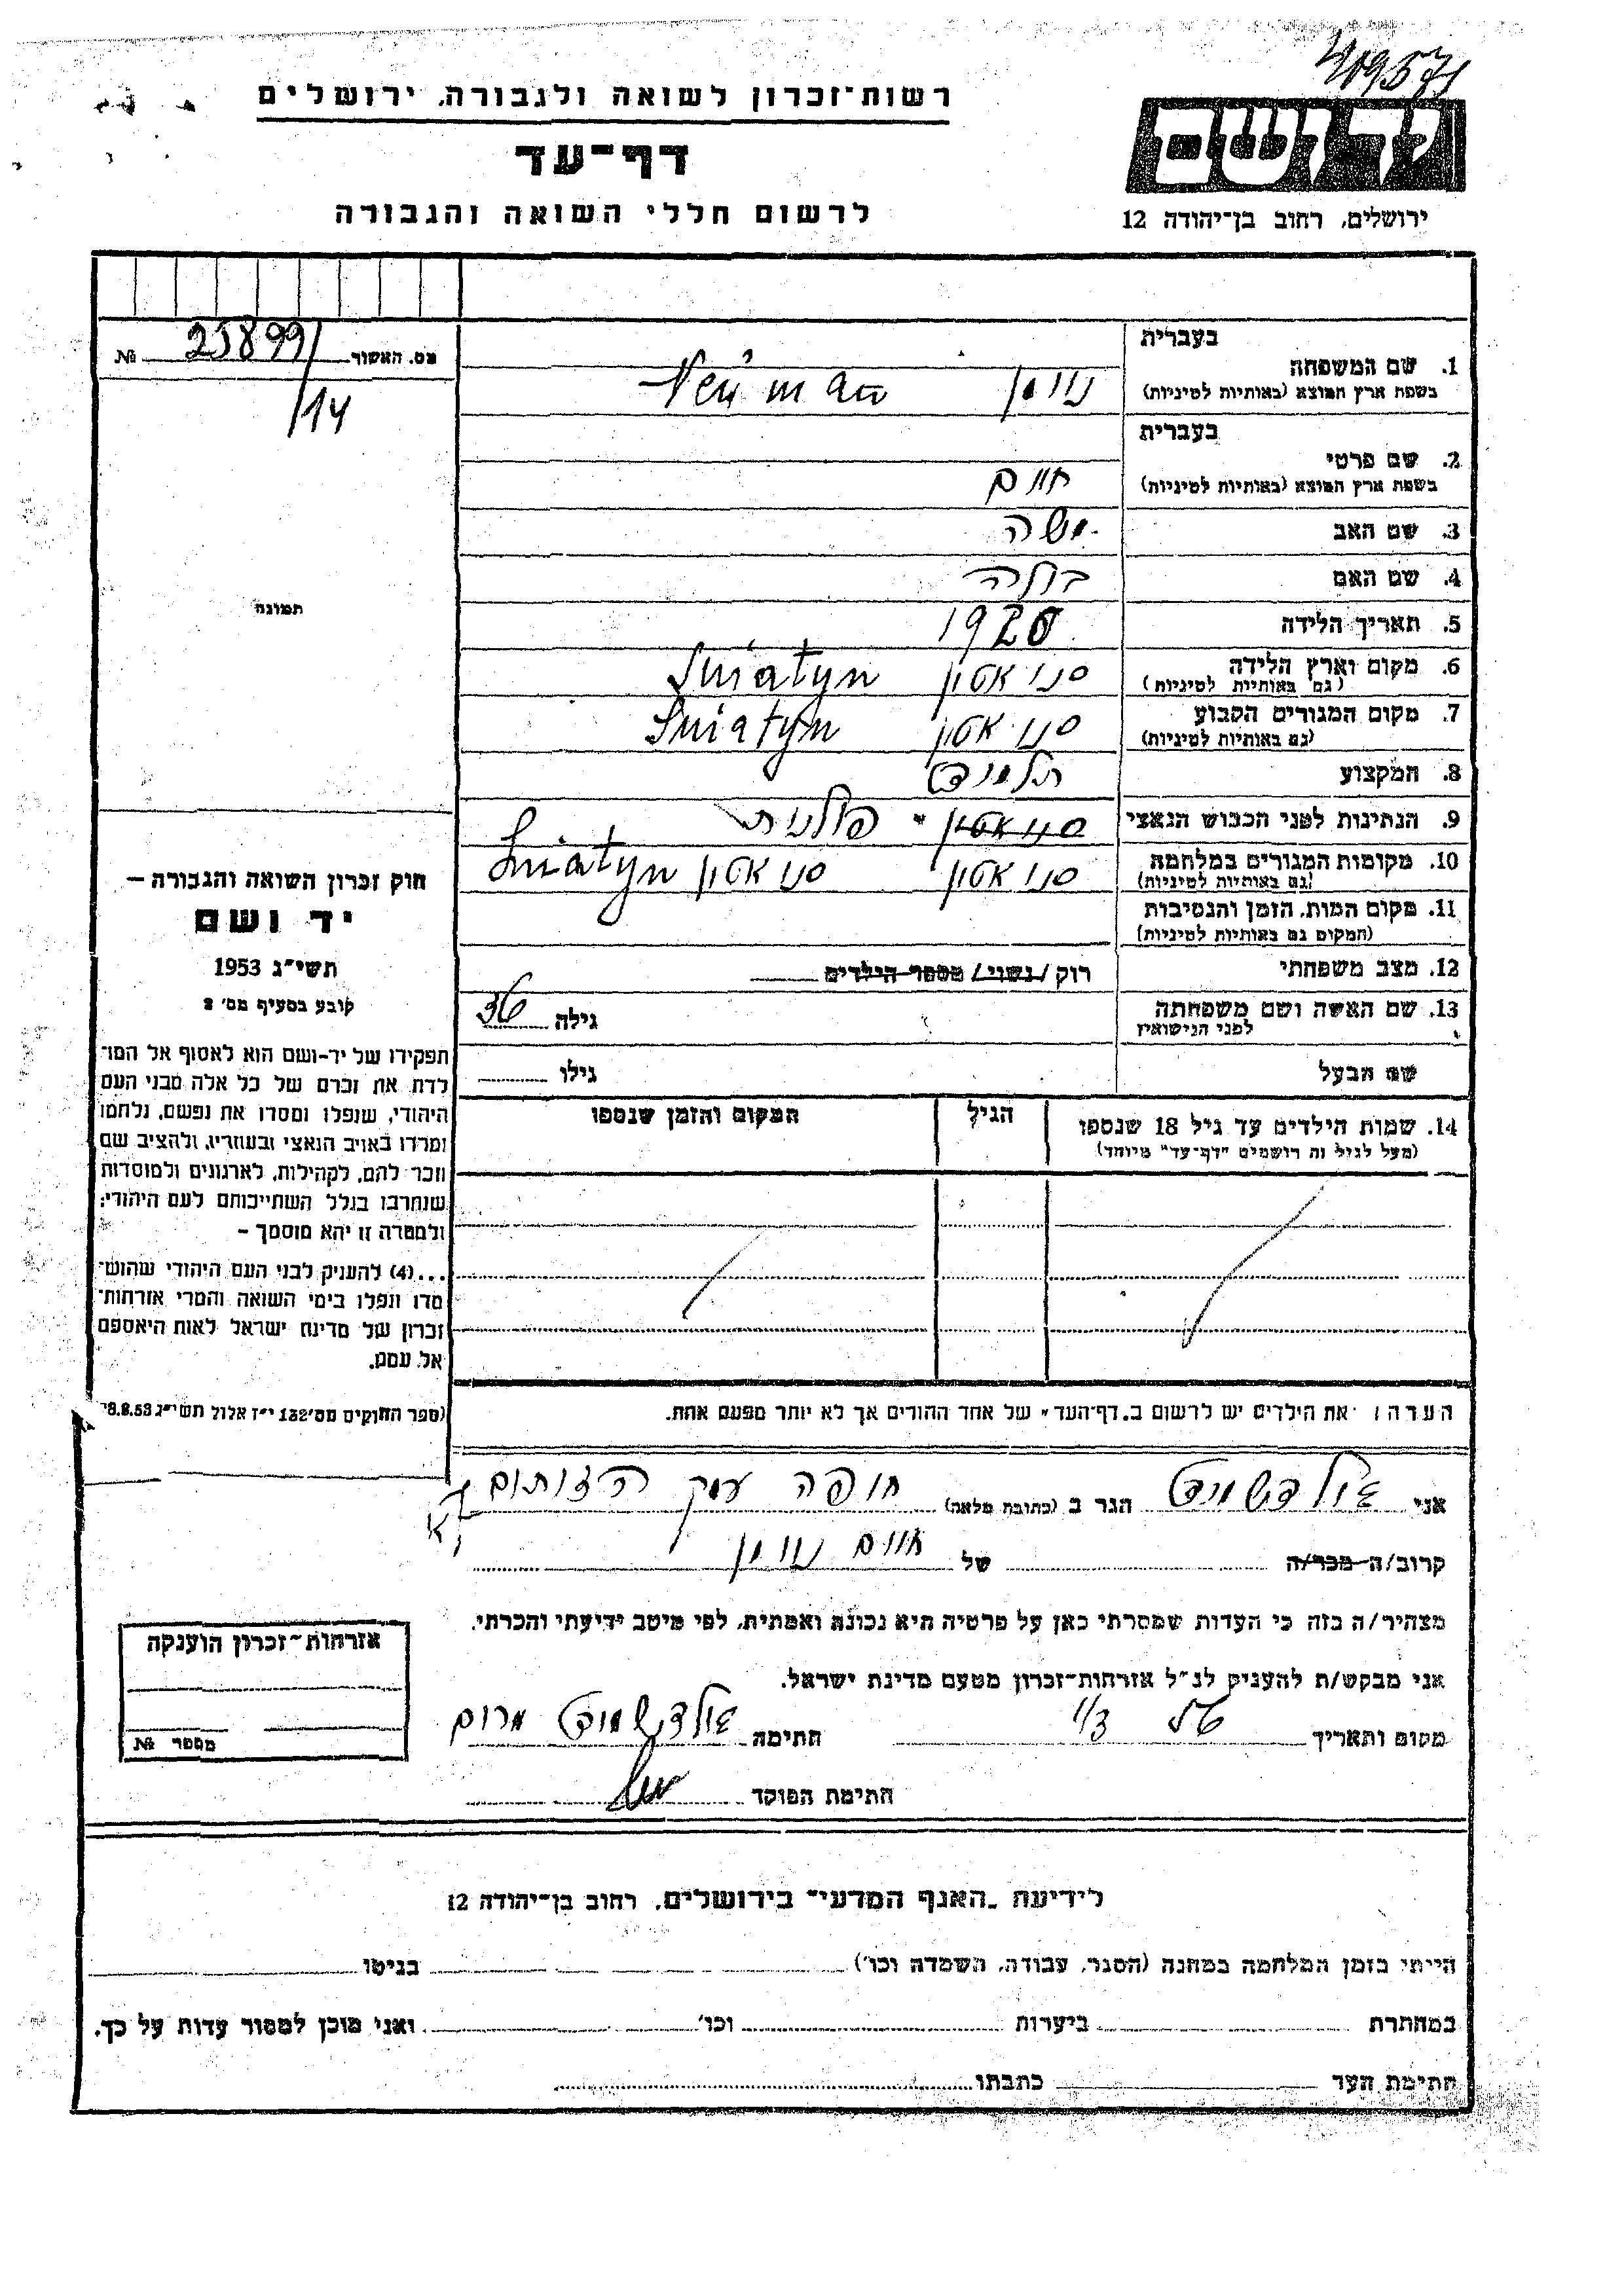 419571
רשות־זכרון לשואה ולגבורה, ירושלים
דף־עד
לרשום חללי השואה והגבורה
יד ושם
ירושלים, רחוב בן־יהודה 12
מס. האשור 25899/ №
/14
תמונה
בעברית
1. שם המשפחה
בשפת ארץ המוצא (באותיות לטיניות)
נוימן Neuman
בעברית
2. שם פרטי
בשפת ארץ המוצא (באותיות לטיניות)
חיים
3. שם האב משה
4. שם האם
5. תאריך הלידה 1920
6. מקום וארץ הלידה סניאטין Sniatyn
(גם באותיות לטיניות)
7. מקום המגורים הקבוע סניאטין Sniatyn
(גם באותיות לטיניות)
8. המקצוע תלמיד
9. הנתינות לפני הכבוש הנאצי סניאטין פולנית
10. מקומות המגורים במלחמה סניאטין סניאטין Sniatyn
(גם באותיות לטיניות)
11. מקום המות, הזמן והנסיבות
(המקום גם באותיות לטיניות)
12. מצב משפחתי רוק / נשוי / מספר הילדים
13. שם האשה ושם משפחתה
לפני הנישואין
גילה 36
שם הבעל גילו
14. שמות הילדים עד גיל 18 שנספו
(מעל לגיל זה רושמים "דף־עד" מיוחד)
הגיל
המקום והזמן שנספו
חוק זכרון השואה והגבורה —
יד ושם
תשי"ג 1953
קובע בסעיף מס' 2
תפקידו של יד-ושם הוא לאסוף אל המו־
לדת את זכרם של כל אלה מבני העם
היהודי, שנפלו ומסרו את נפשם, נלחמו
ומרדו באויב הנאצי ובעוזריו, ולהציב שם
וזכר להם, לקהילות, לארגונים ולמוסדות
שנחרבו בגלל השתייכותם לעם היהודי;
ולמטרה זו יהא מוסמך —
...(4) להעניק לבני העם היהודי שהוש־
מדו ונפלו בימי השואה והמרי אזרחות־
זכרון של מדינת ישראל לאות היאספם
אל עמם.
(ספר החוקים מס' 132 י"ז אלול תשי"ג 28.8.53)
הערה: את הילדים יש לרשום ב„דף־העד" של אחד ההורים אך לא יותר מפעם אחת.
אני גולדשמידט הגר ב (כתובת מלאה) חיפה עמק הזיתים
קרוב/ה מכר/ה של חיים נוימן
מצהיר/ה בזה כי העדות שמסרתי כאן על פרטיה היא נכונה ואמתית, לפי מיטב ידיעתי והכרתי.
אני מבקש/ת להעניק לנ"ל אזרחות־זכרון מטעם מדינת ישראל.
מקום ותאריך חתימה גולדשמידט מרים
חתימת הפוקד
אזרחות־זכרון הוענקה
מספר №
לידיעת „האגף המדעי" בירושלים, רחוב בן־יהודה 12
הייתי בזמן המלחמה במחנה (הסגר, עבודה, השמדה וכו') בגיטו
במחתרת ביערות וכו' ואני מוכן למסור עדות על כך.
חתימת העד כתבתו